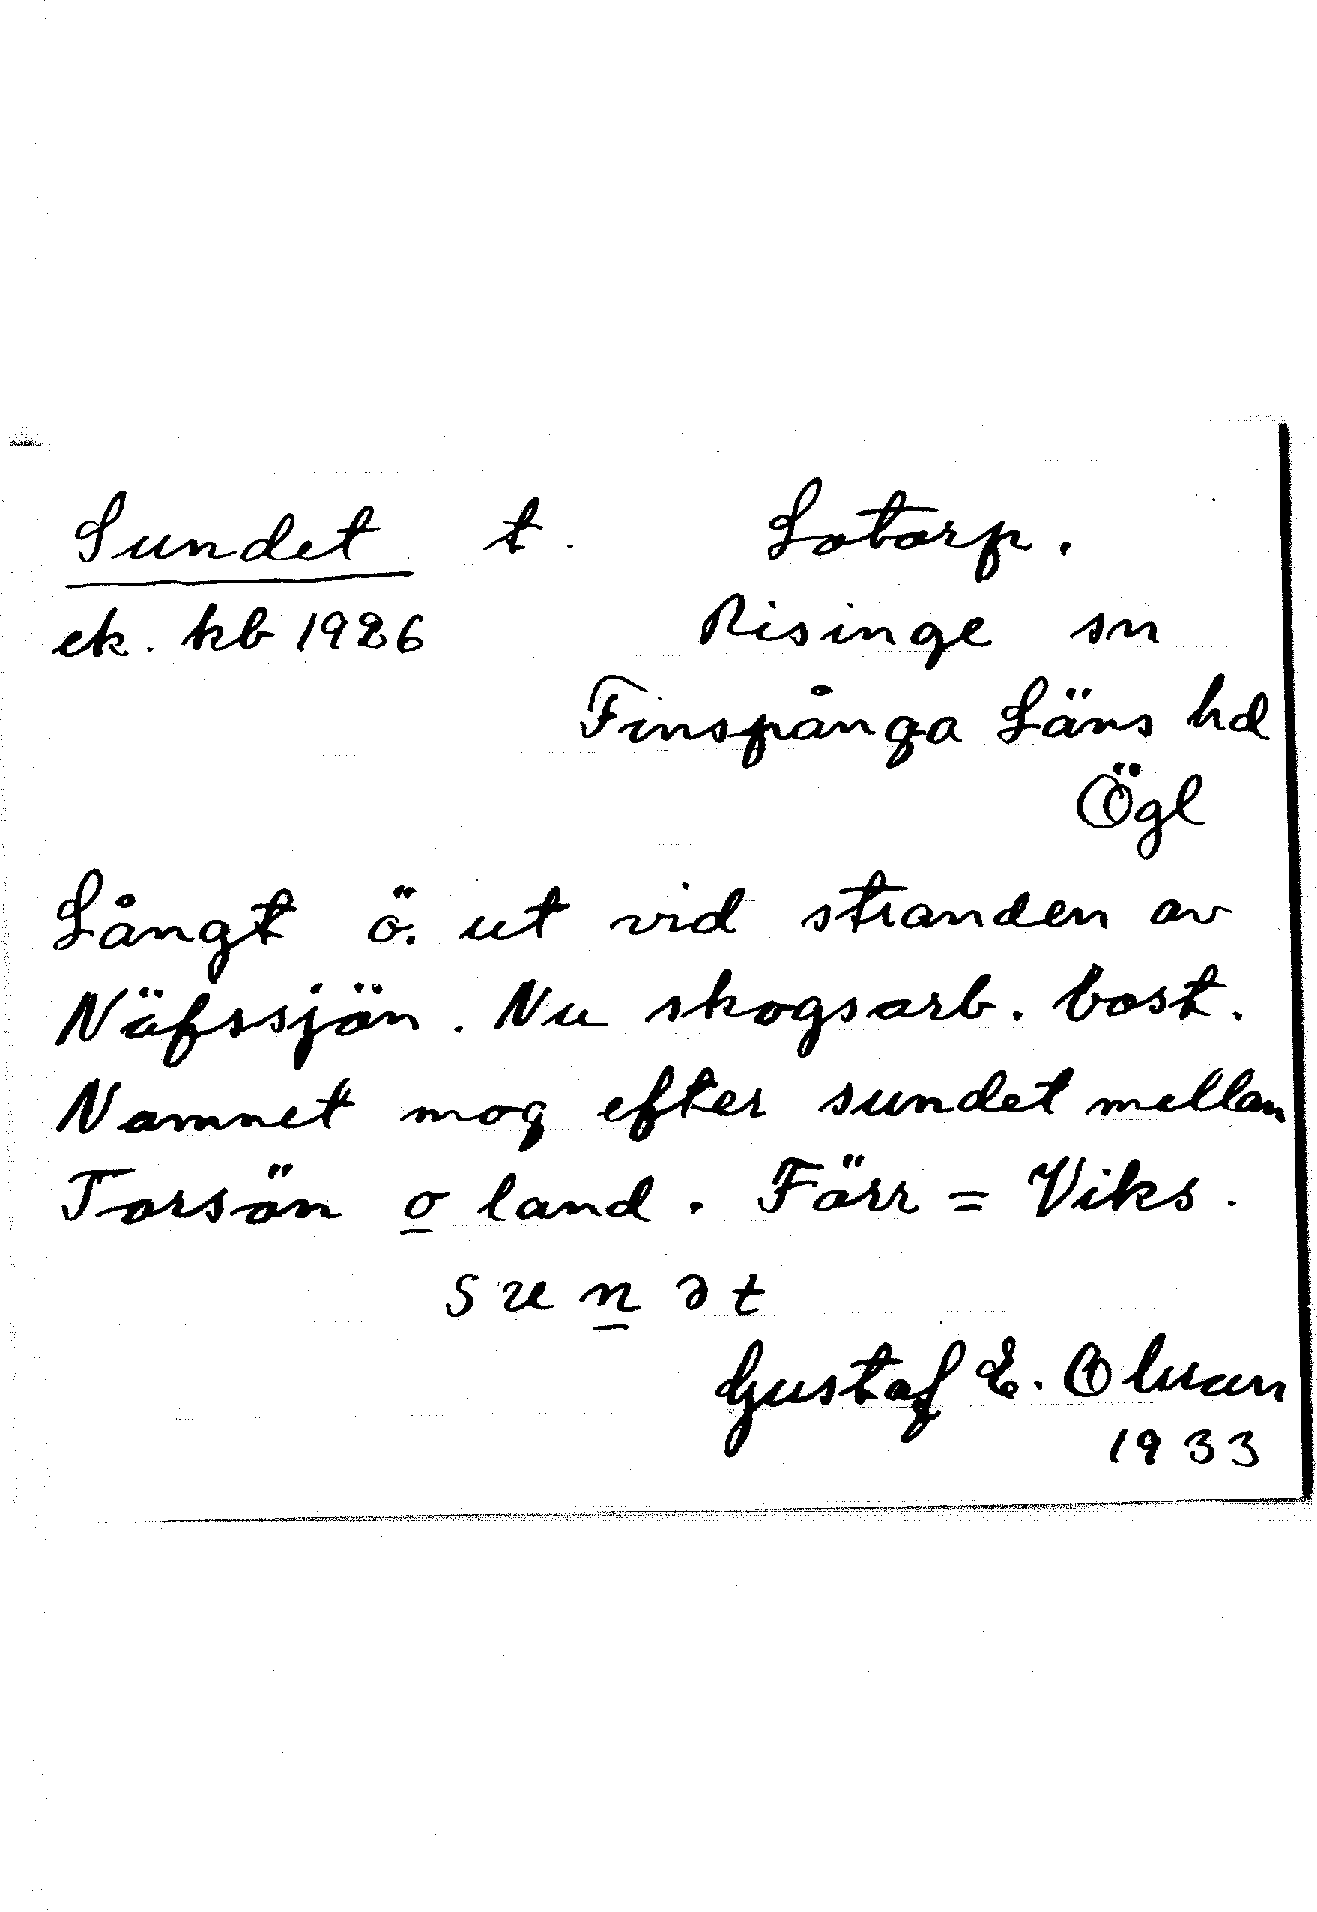 Sundet t. Lotorp.
ek. kb 1926 Risinge sn
Finspånga Läns hd
Ögl
Långt ö. ut vid stranden av
Näfssjön. Nu skogsarb. bost.
Namnet mog efter sundet mellan
Torsön o land. Förr = Viks.
s u n ə t
Gustaf E.
1933